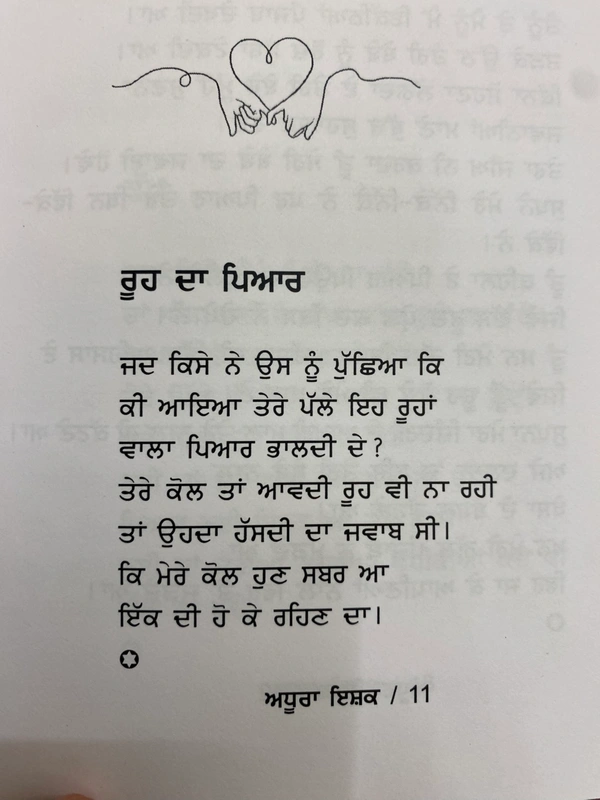 ਰੂਹ ਦਾ ਪਿਆਰ
ਜਦ ਕਿਸੇ ਨੇ ਉਸ ਨੂੰ ਪੁੱਛਿਆ ਕਿ
ਕੀ ਆਇਆ ਤੇਰੇ ਪੱਲੇ ਇਹ ਰੂਹਾਂ
ਵਾਲਾ ਪਿਆਰ ਭਾਲਦੀ ਦੇ?
ਤੇਰੇ ਕੋਲ ਤਾਂ ਆਵਦੀ ਰੂਹ ਵੀ ਨਾ ਰਹੀ
ਤਾਂ ਉਹਦਾ ਹੱਸਦੀ ਦਾ ਜਵਾਬ ਸੀ।
ਕਿ ਮੇਰੇ ਕੋਲ ਹੁਣ ਸਬਰ ਆ
ਇੱਕ ਦੀ ਹੋ ਕੇ ਰਹਿਣ ਦਾ।
ਅਧੂਰਾ ਇਸ਼ਕ / 11